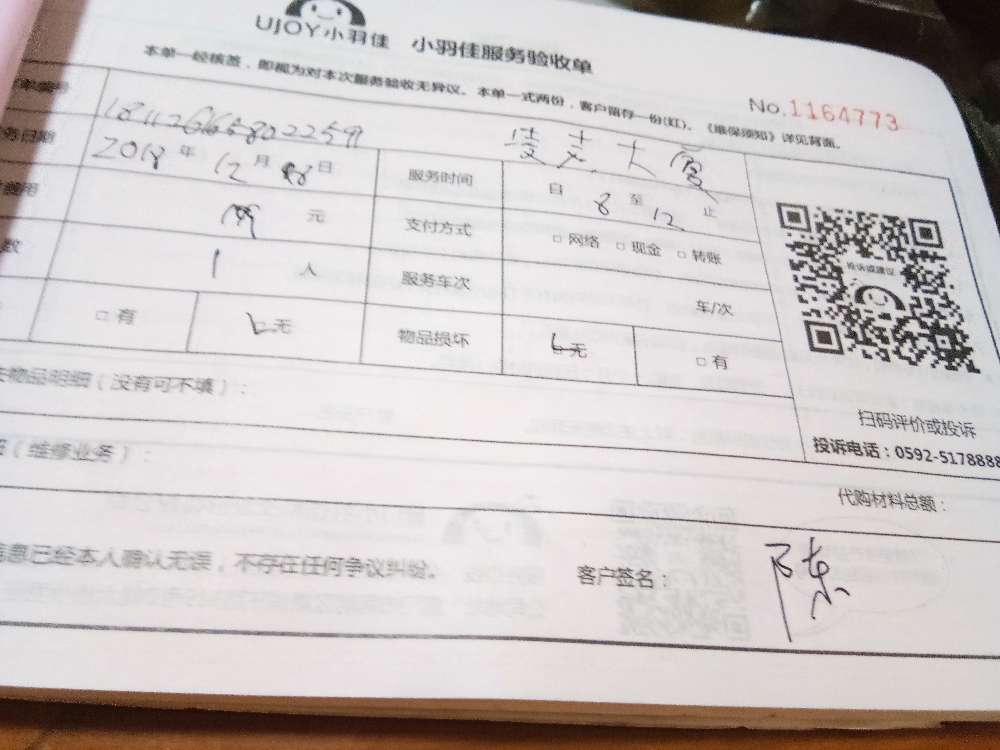 UJOY小羽佳 小羽佳服务验收单
本单一经核签，即视为对本次服务验收无异议。本单一式两份，客户留存一份(红)。《维保须知》详见背面。
No.1164773
单编号
务日期 2018年12月08日 服务时间 自8至12止
费用 元 支付方式 □网络 □现金 □转账
数 1 人 服务车次 车/次
□有 无 物品损坏 无 □有
投诉或建议
物品明细（没有可不填）：
扫码评价或投诉
投诉电话：0592-5178888
（维修业务）：
代购材料总额：
信息已经本人确认无误，不存在任何争议纠纷。 客户签名： 陈